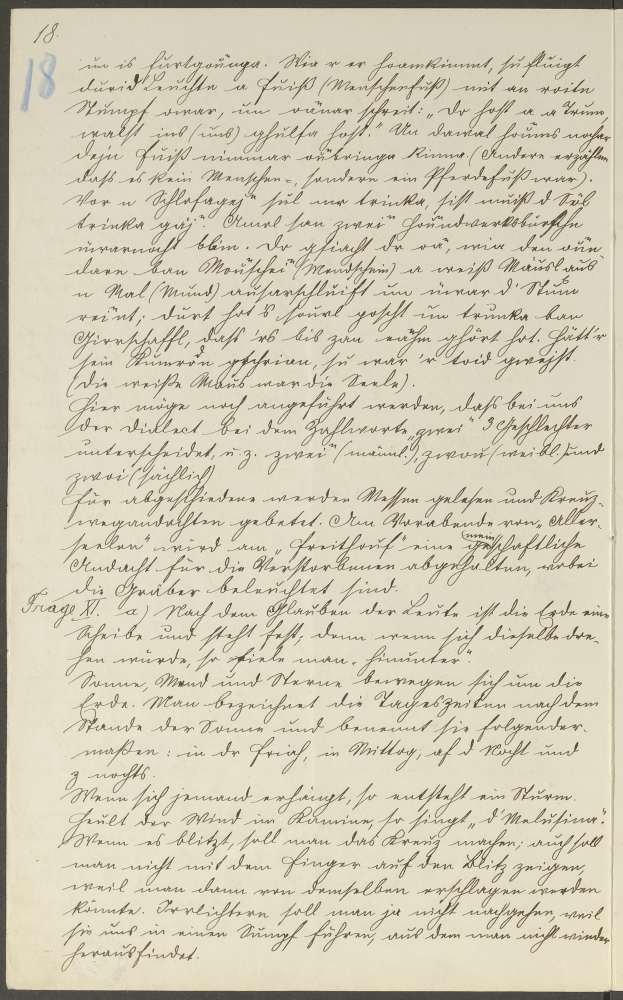 18.
18
un is furtgounga. Wia r er hoamkimmt, su fluigt
durid Leuchtn a Fuiß (Menschenfuß) mit an roitn
Stumpf owar, un oanar schreit: „Do host a a Trum,
walst ins (uns) ghulfa host." Un dawal houms nochar
dejn Fuiß nimmar oubringa kinna. (Andere erzählen
daß es kein Menschen-, sondern ein Pferdefuß war).
Vor n Schlofagej sul mr trinka, sist muiß d Söl
trinka gäj". Amol san zwei Houndwerksbürschn
üwarnocht blim. Do gsiacht dr oa, wia den oun
darn ban Mouschei (Mondschein) a weiß Mäusl aus
n Mal (Mund) ausarschluift un üwar d' Stum
reint; durt hot's sourl goscht un trunka ban
Girrschaffl, daß 'rs bis zan eahm ghört hot. Hätt'r
sein Kumrodn gschrian, su war 'r toid gwejst.
(Die weiße Maus war die Seele).
Hier möge noch angeführt werden, daß bei uns
der Dialect bei dem Zahlworte „zwei" 3 Geschlechter
unterscheidet, u. z. zwei (männl.), zwou (weibl.) und
zwoi (sächlich)
Für abgeschiedene werden Messen gelesen und Kreuz-
wegandachten gebetet. Am Vorabende von „Aller-
seelen" wird am „Freithouf" eine gemeinschaftliche
Andacht für die Verstorbenen abgehalten, wobei
die Gräber beleuchtet sind.
Frage XI. a) Nach dem Glauben der Leute ist die Erde eine
Scheibe und steht fest; denn wenn sich dieselbe dre-
hen würde, so fiele man „hinunter".
Sonne, Mond und Sterne bewegen sich um die
Erde. Man bezeichnet die Tageszeiten nach dem
Stande der Sonne und benennt sie folgender-
maßen: in dr Friah, in Mittog, af d Nocht und
z nochts.
Wenn sich jemand erhängt, so entsteht ein Sturm.
Heult der Wind im Kamine, so singt „d' Melusina".
Wenn es blitzt, soll man das Kreuz machen; auch soll
man nicht mit dem Finger auf den Blitz zeigen,
weil man dann von demselben erschlagen werden
könnte. Irrlichtern soll man ja nicht nachgehen, weil
sie uns in einen Sumpf führen, aus dem man nicht wieder
herausfindet.